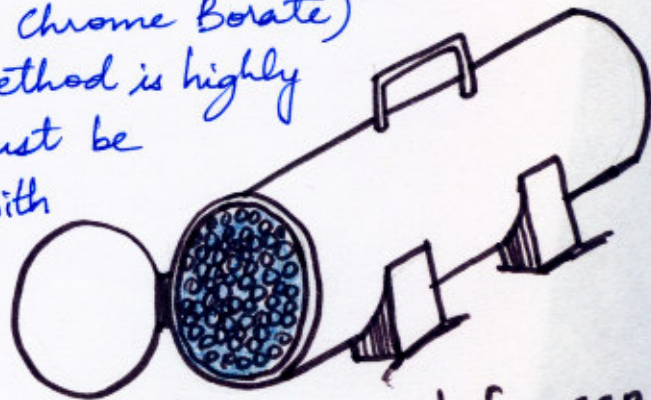 Chrome Borate)
ethod is highly
ust be
ith